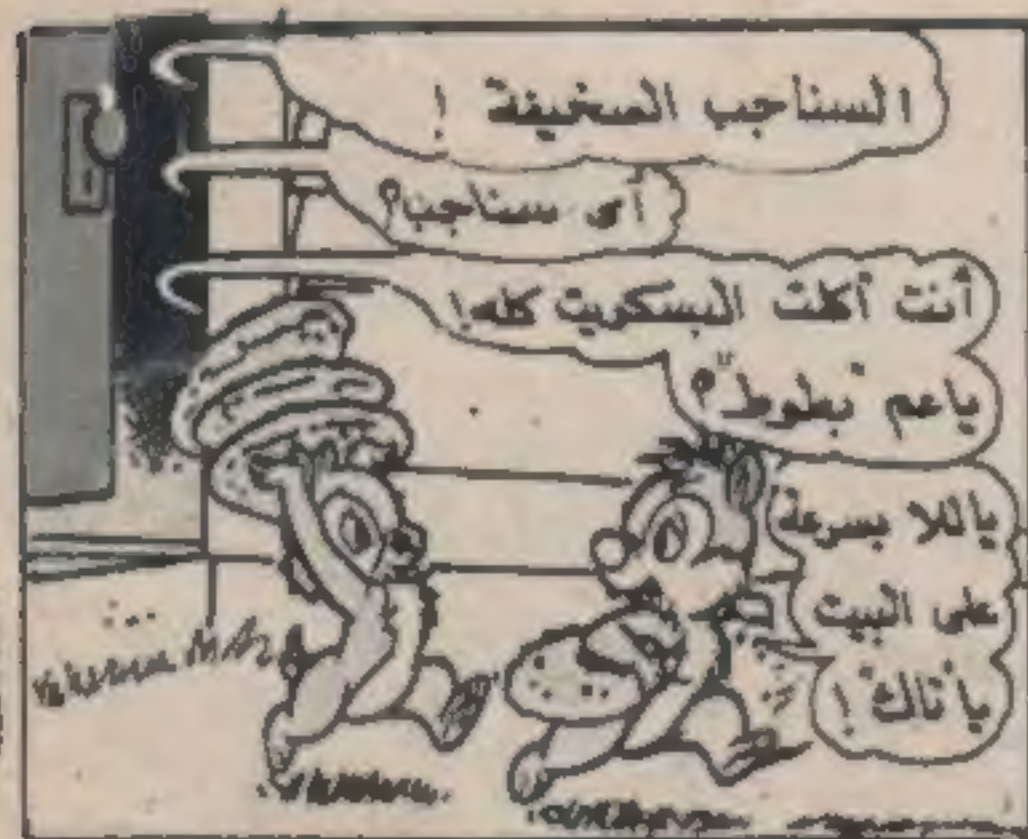 السناجب السخيفة !
أى سناجب؟
أنت أكلت البسكويت كله!
ياعم "بطوط"؟
ياللا بسرعة
على البيت
يا"تاك" !